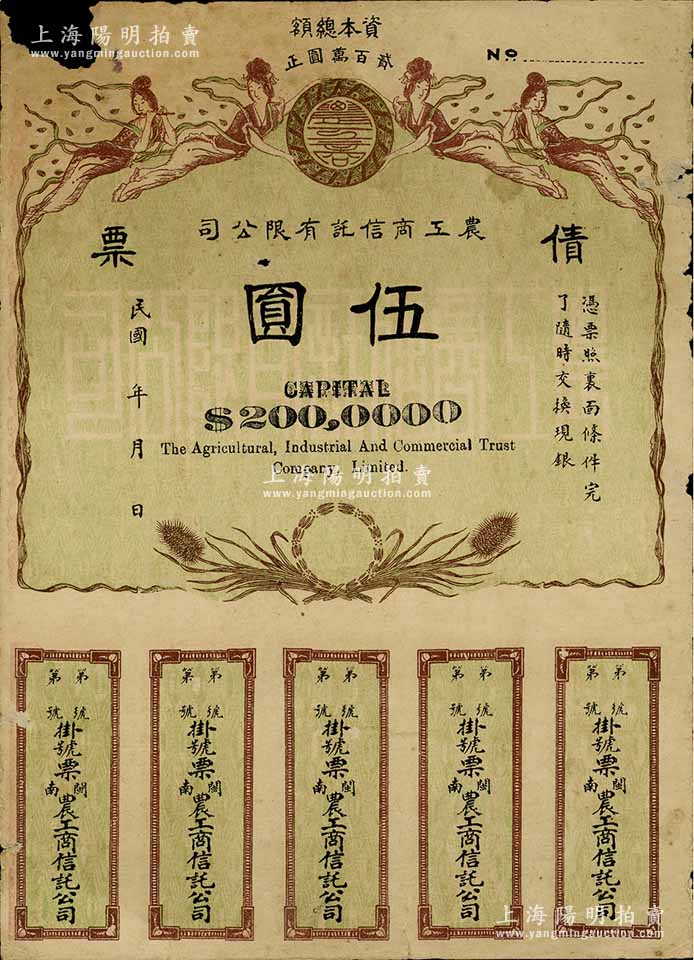 上海陽明拍賣
www.yangmingauction.com
上海陽明拍賣
www.yangmingauction.com
額總本資
正圓萬百貳
No
司公限有託信商工農
債
票
伍
圓
憑票照裏面條件完
了隨時交換現銀
民國 年 月 日
CAPITAL
$200,0000
The Agricultural, Industrial And Commercial Trust
Company, Limited.
上海陽明拍賣
www.yangmingauction.com
第 第
號 號
掛號票
南 閩
農工商信託公司
第 第
號 號
掛號票
南 閩
農工商信託公司
第 第
號 號
掛號票
南 閩
農工商信託公司
第 第
號 號
掛號票
南 閩
農工商信託公司
第 第
號 號
掛號票
南 閩
農工商信託公司
上海陽明拍賣
www.yangmingauction.com